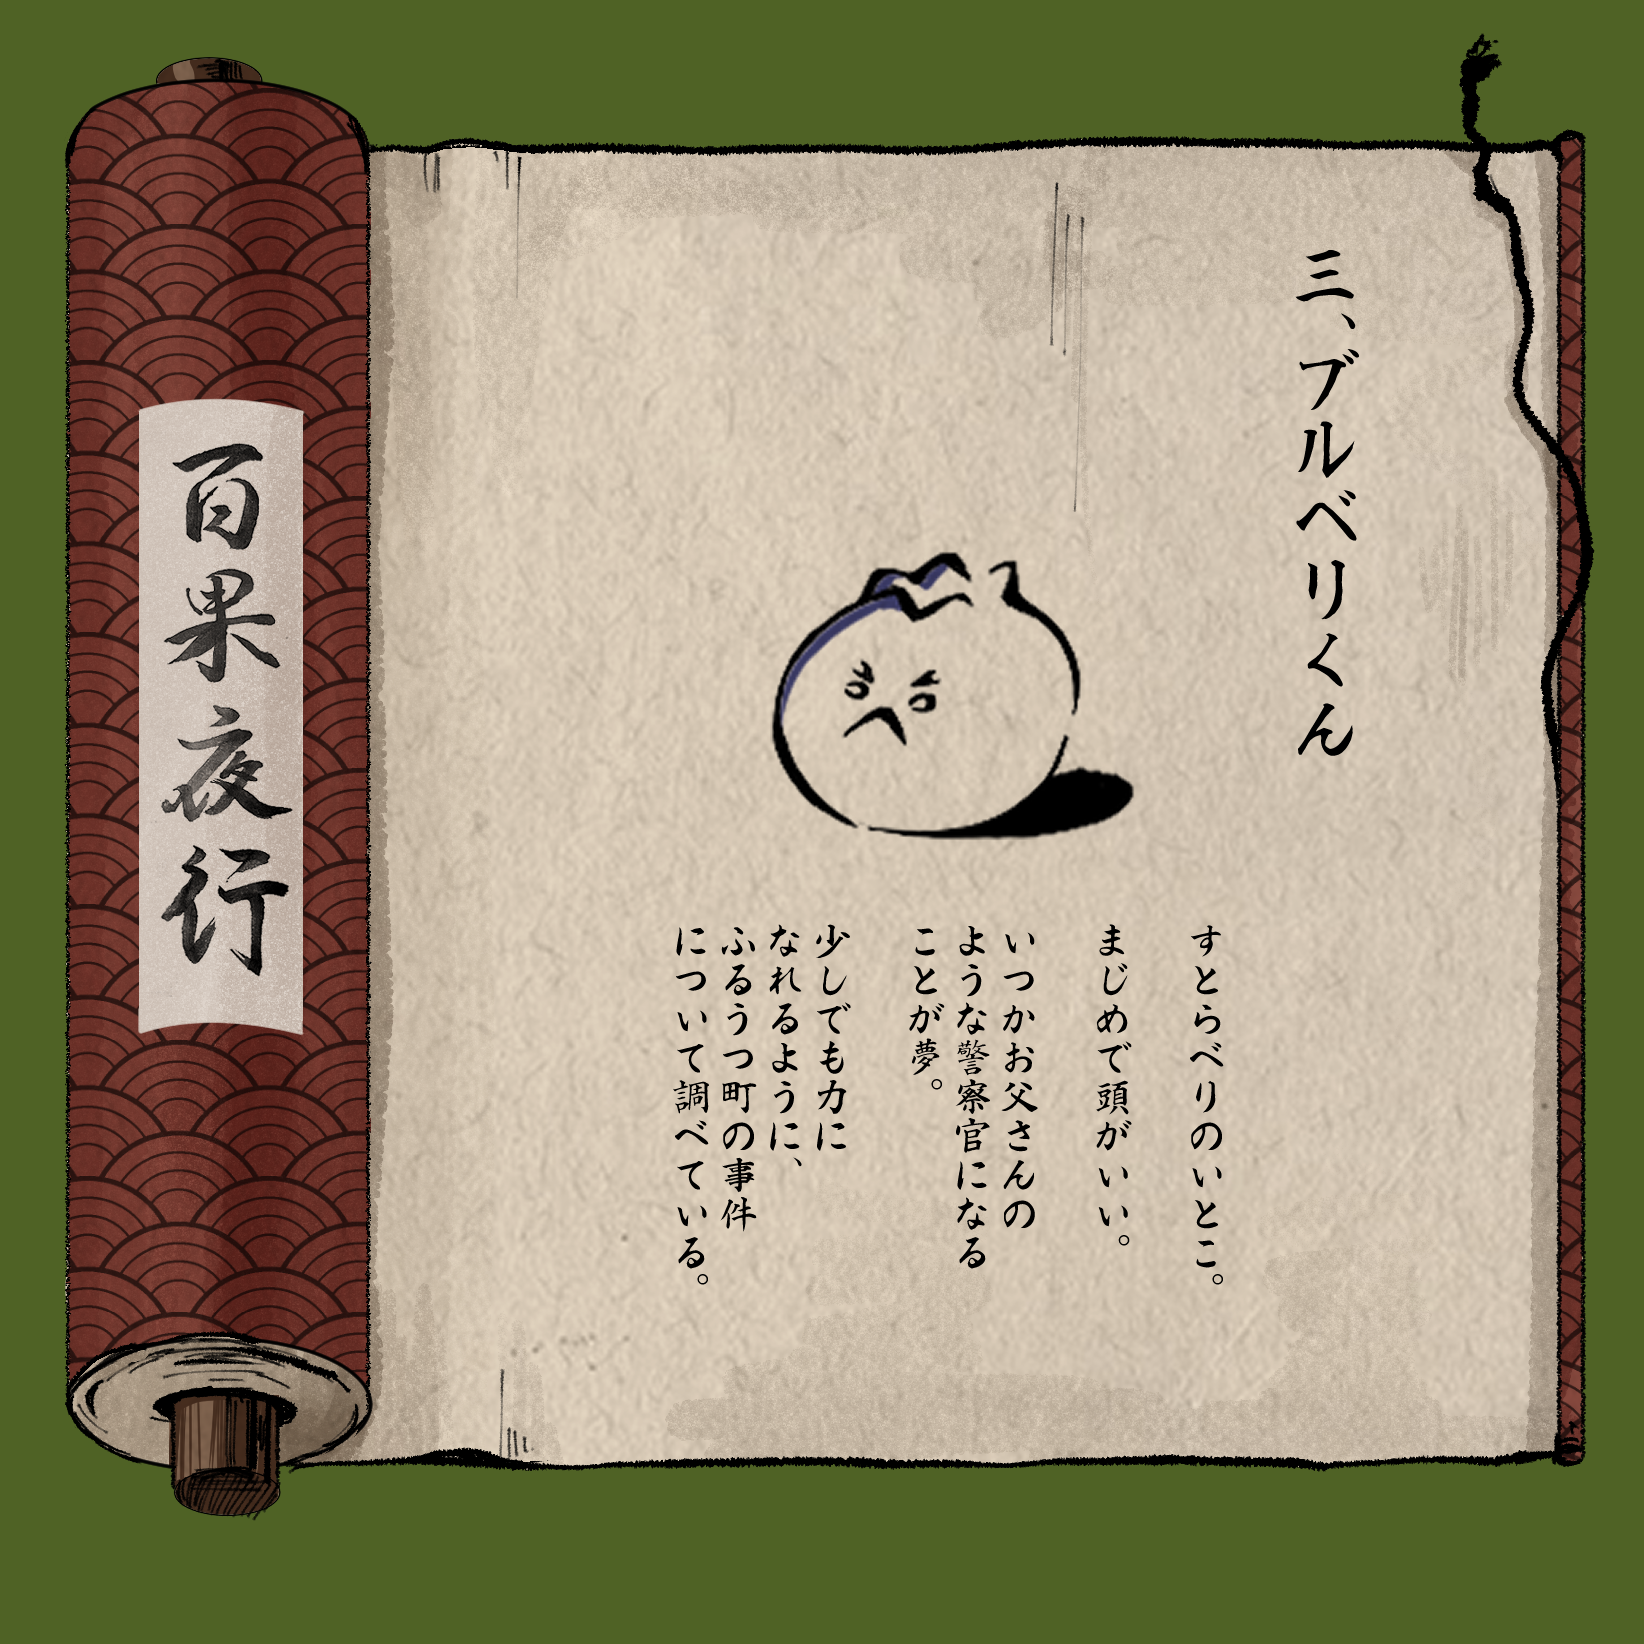 三、ブルベリくん
すとらべりのいとこ。
まじめで頭がいい。
いつかお父さんの
ような警察官になる
ことが夢。
少しでも力に
なれるように、
ふるうつ町の事件
について調べている。
百果夜行